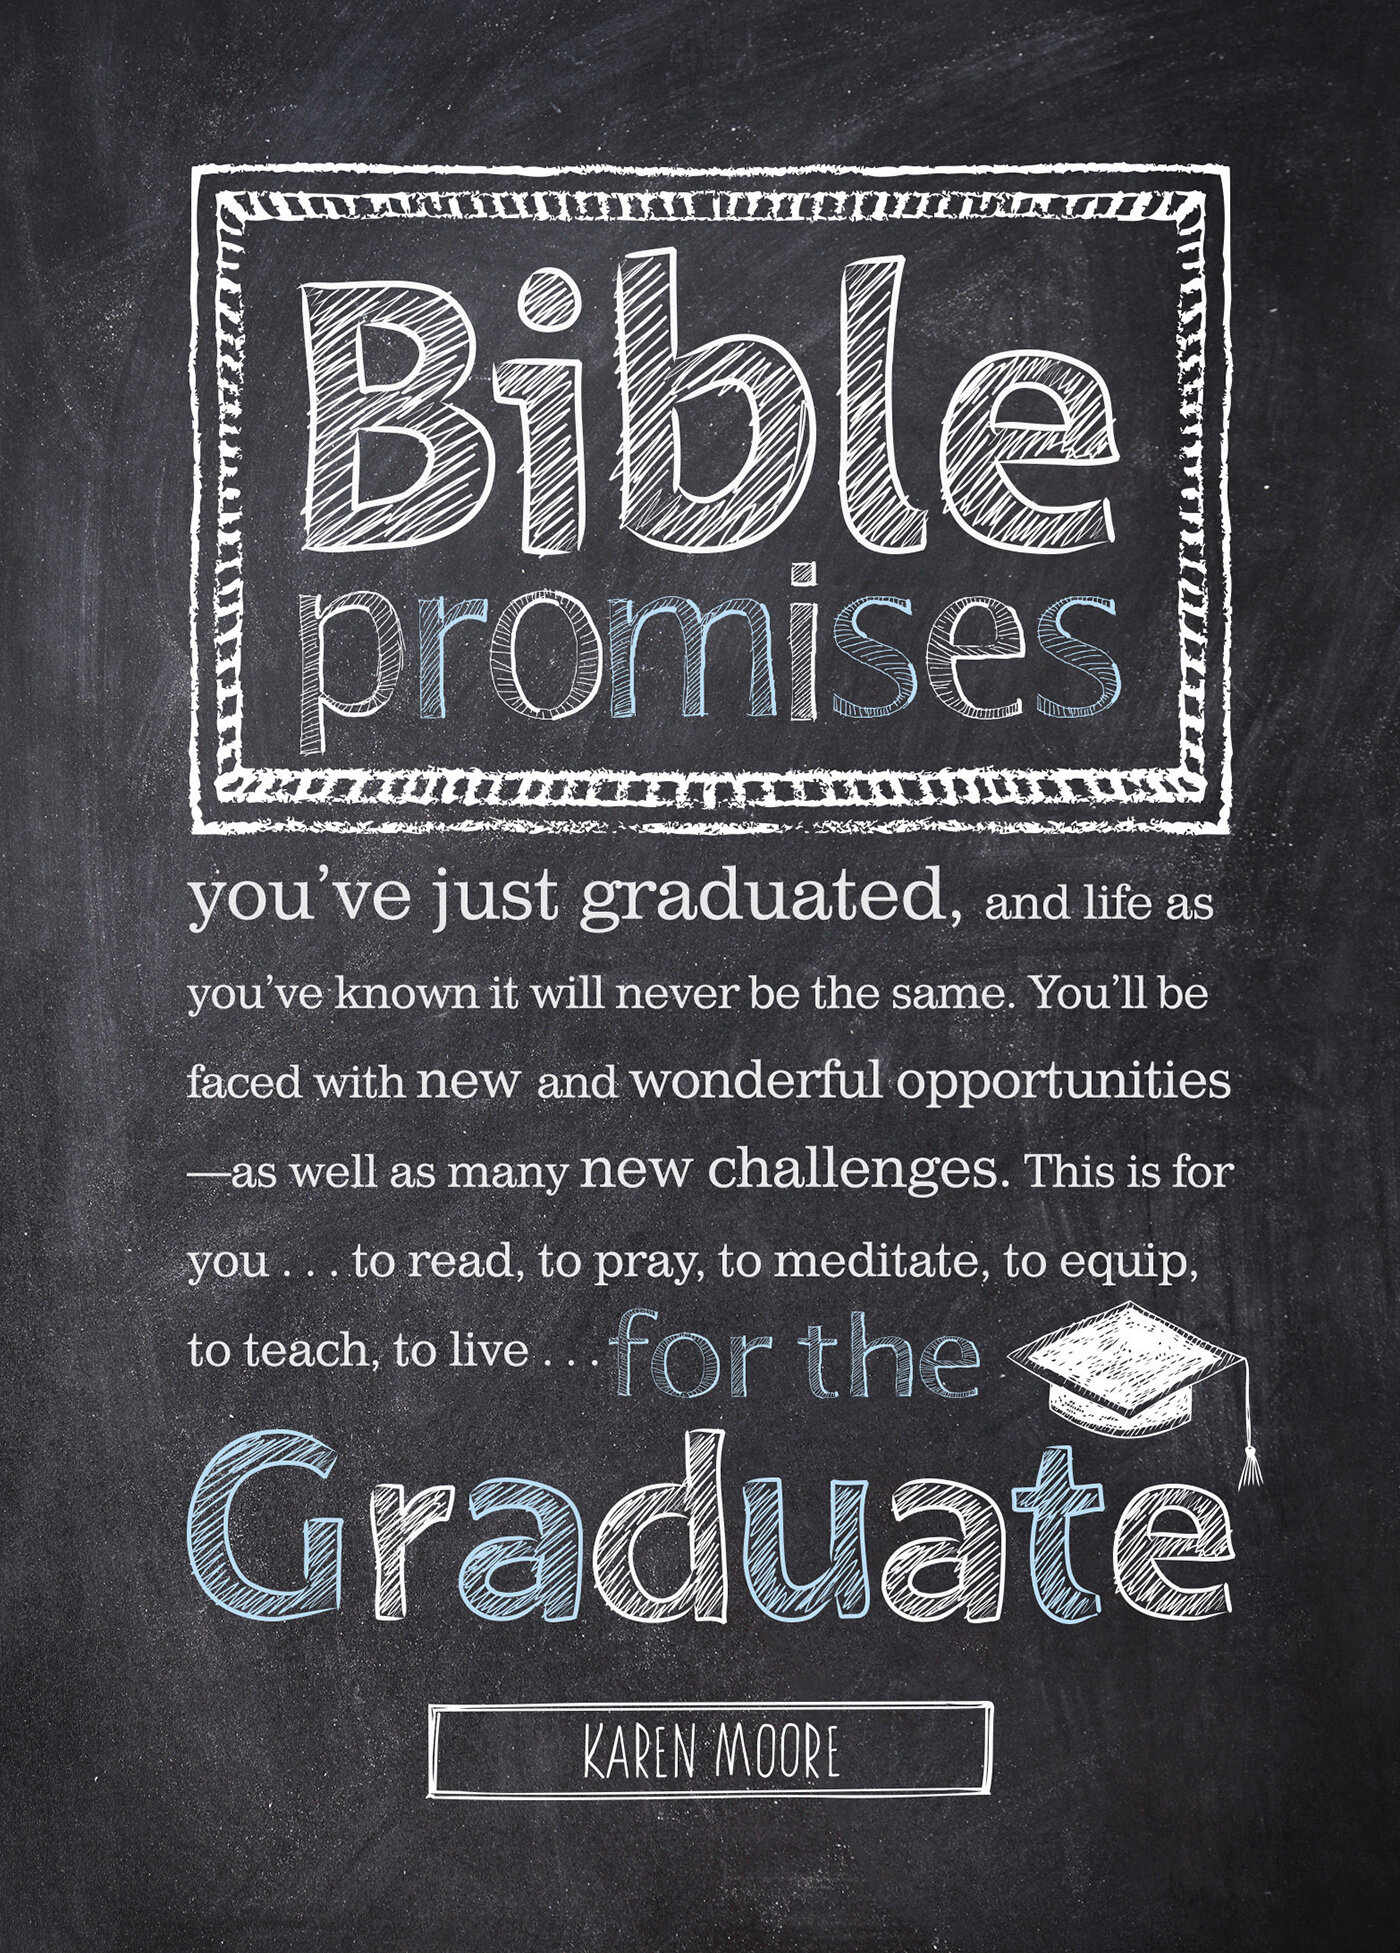 Bible
promises
you’ve just graduated, and life as
you’ve known it will never be the same. You’ll be
faced with new and wonderful opportunities
—as well as many new challenges. This is for
you . . . to read, to pray, to meditate, to equip,
to teach, to live . . . for the
Graduate
KAREN MOORE